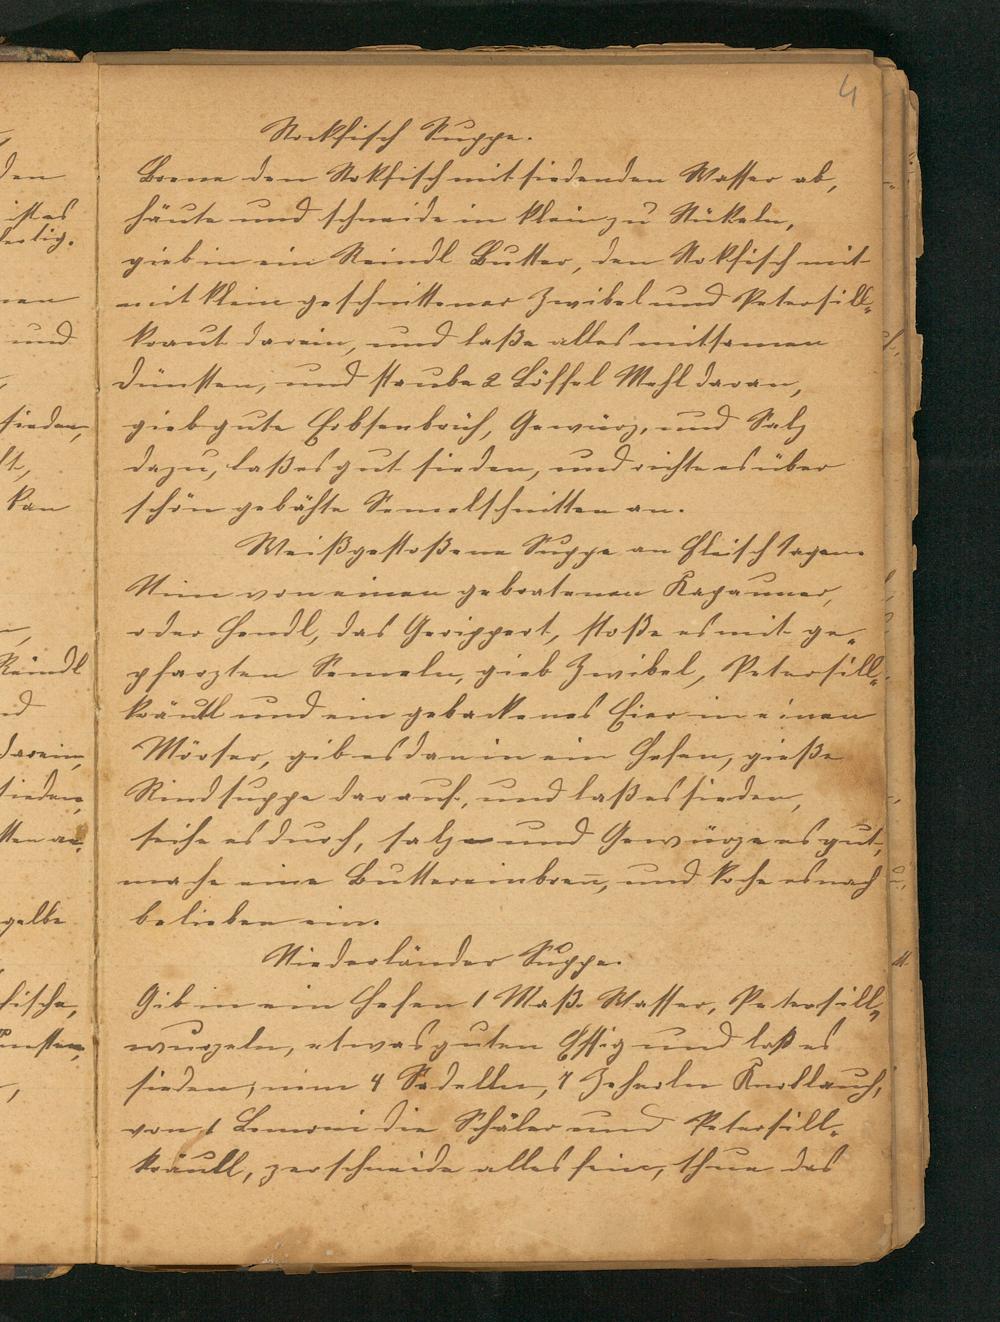 4
Stockfisch Suppe.
Brene den Stokfisch mit siedenden Wasser ab,
häute und schneide in klein zu Stükeln,
gieb in ein Reindl Butter, den Stokfisch mit
mit klein geschnittener Zwibel und Petersill„
kraut darein, und laße alles mitsamen
dünsten, und staube 2 Löffel Mehl daran,
gieb gute Erbsenbrüh, Gewürz, und Salz
dazu, laß es gut sieden, und richte es über
schön gebähte Semelschnitten an.
Weißgestoßene Suppe an Fleischtagen.
Nim von einen gebratenen Kapauner,
oder Hendl, das Gerippert, stoße es mit ge„
pfarzten Semeln, gieb Zwibel, Petersill„
kräutl und ein gebackenes Eier in einen
Mörser, gib es dan in ein Hefen, gieße
Rindsuppe darauf, und laß es sieden,
seihe es durch, salze und Gewürze es gut,
mache eine Buttereinbren̄, und koche es nach
belieben ein.
Niederländer Suppe.
Gib in ein Hefen 1 Maß Wasser, Petersill„
wurzeln, etwas guten Essig und laß es
sieden, nim 4 Sardellen, 4 Zeherln Knoblauch,
von 1 Lemoni die Schäler und Petersill„
kräutl, zerschneide alles fein, thue das
den
ist es
fertig.
und
sieden,
kan
Reindl
darein,
sieden,
gelbe
fische,